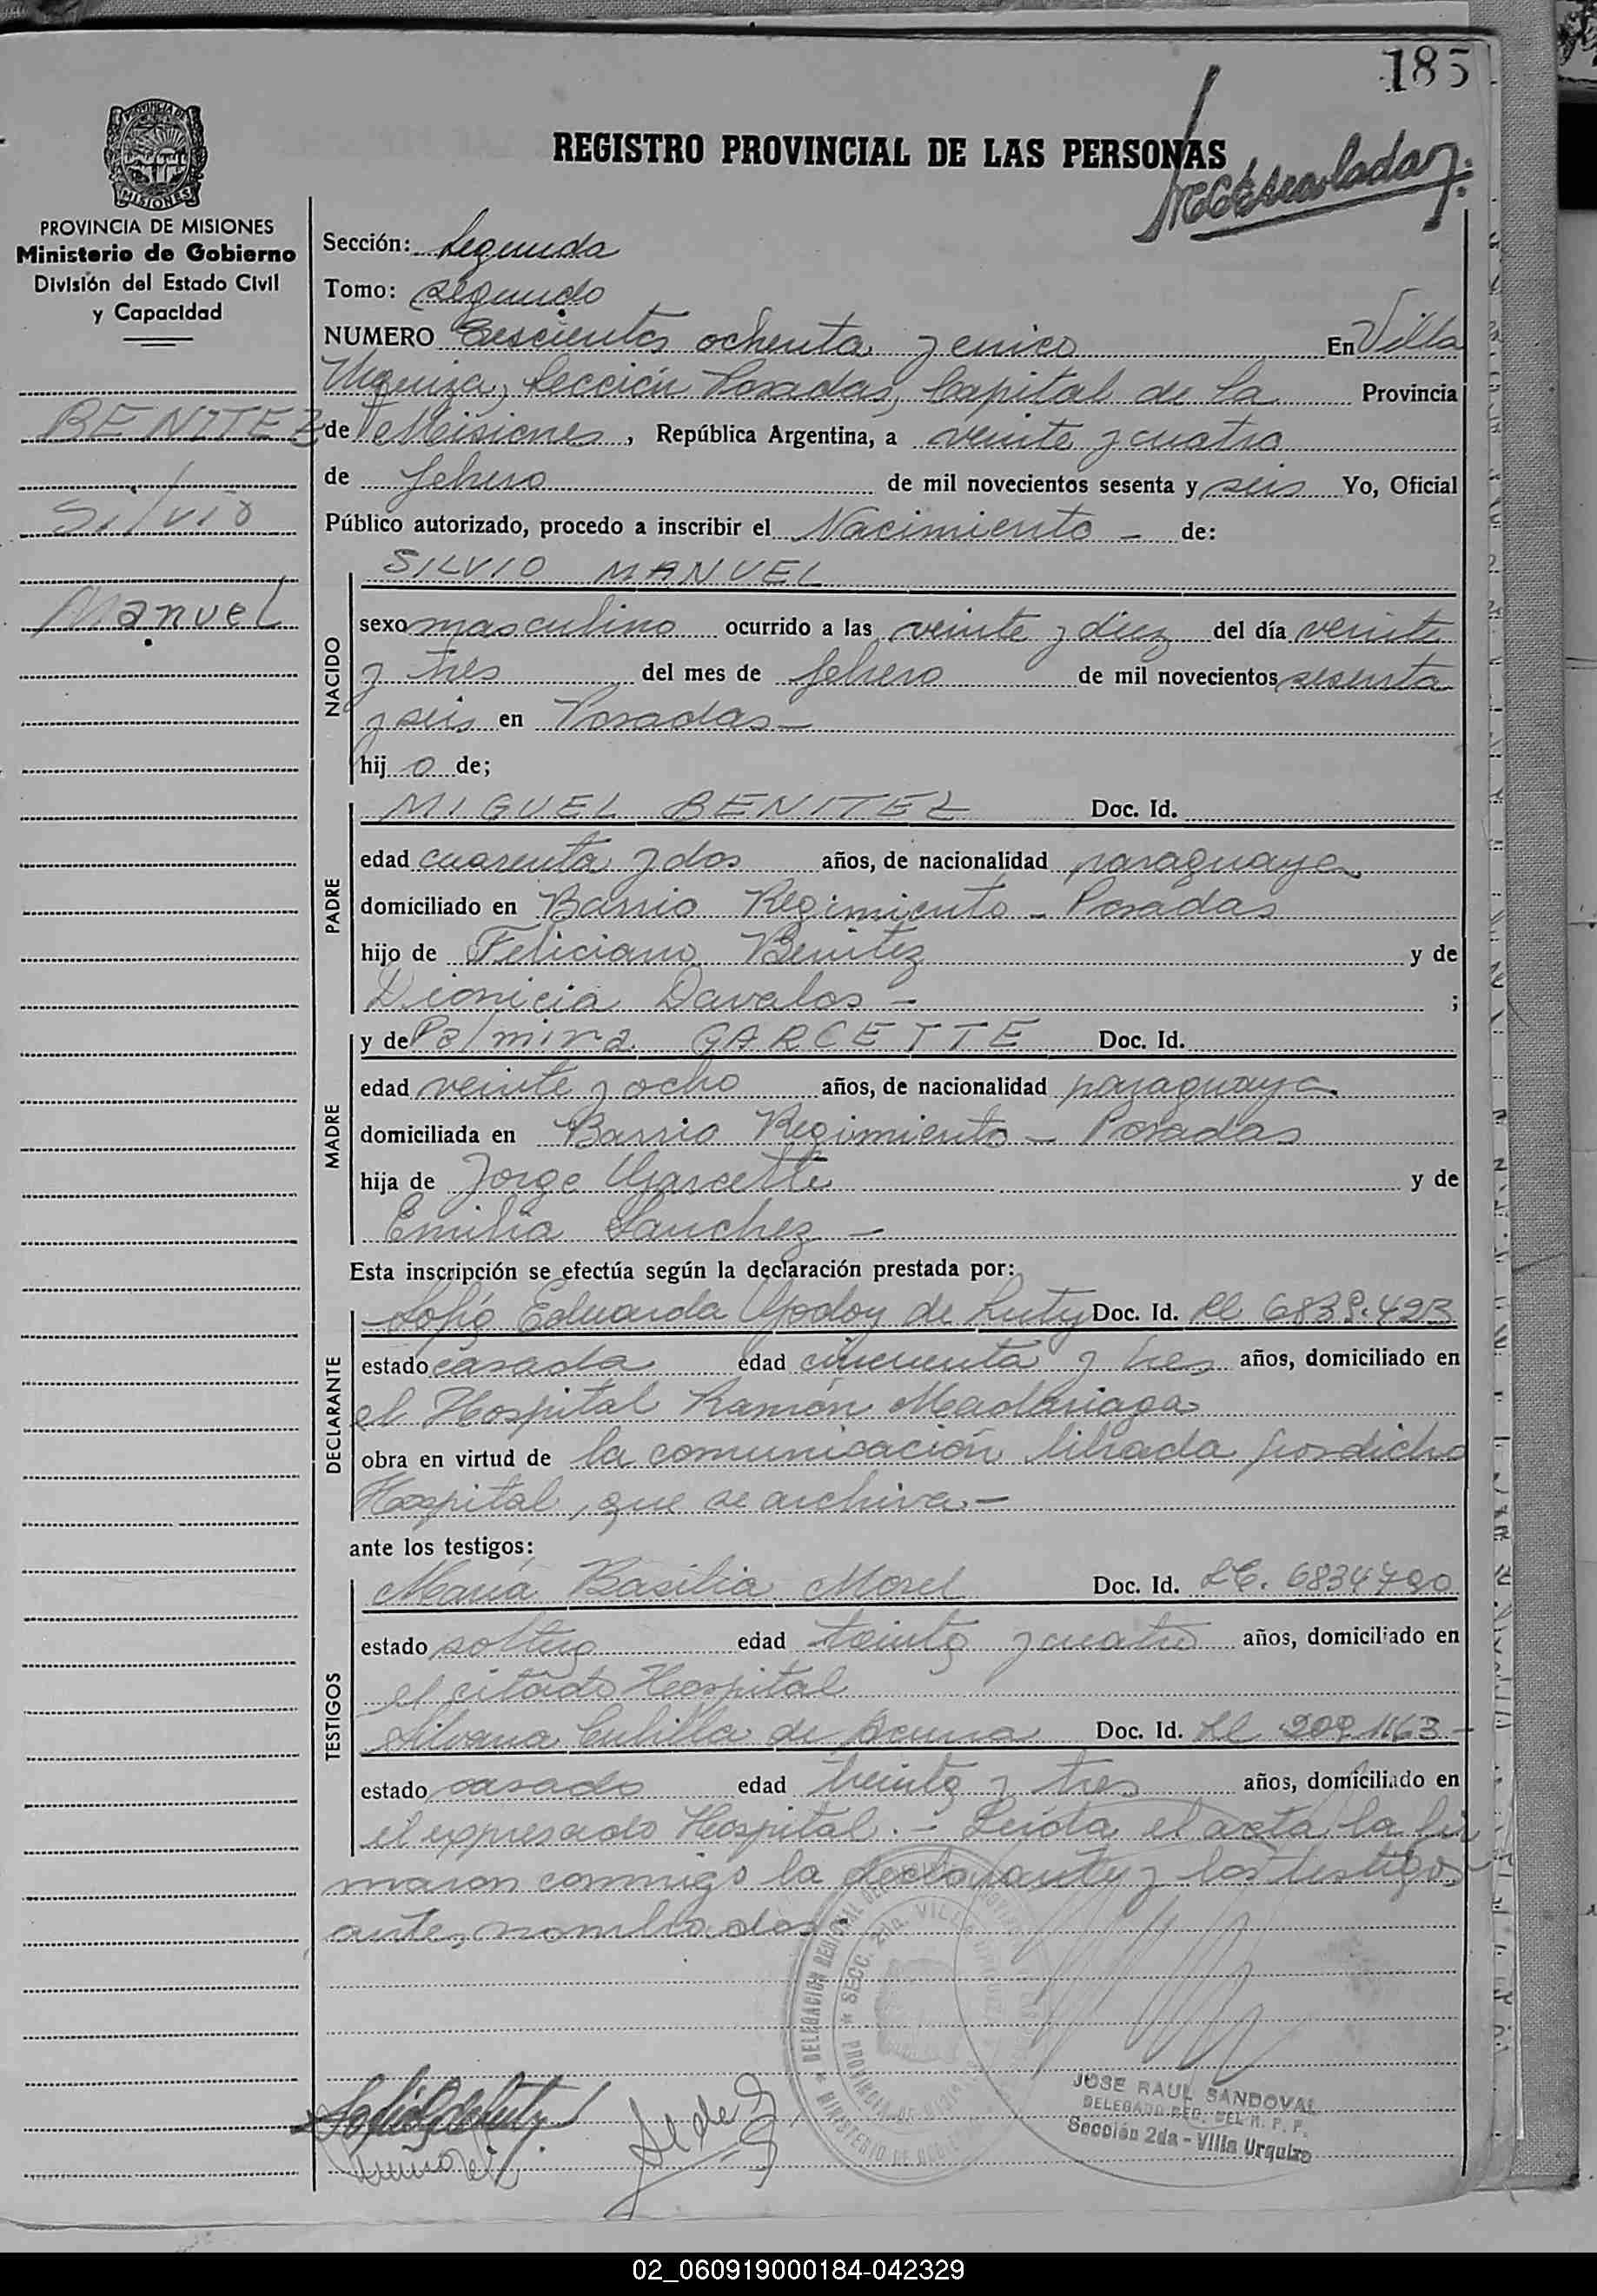 185
REGISTRO PROVINCIAL DE LAS PERSONAS
PROVINCIA DE MISIONES
Ministerio de Gobierno
División del Estado Civil
y Capacidad
BENITEZ
Silvio
Manuel
Sección: Segunda
Tomo: segundo
NUMERO ochenta y cinco En Villa
Urquiza, Sección Posadas, Capital de la Provincia
de Misiones, República Argentina, a veinte y cuatro
de febrero de mil novecientos sesenta y seis Yo, Oficial
Público autorizado, procedo a inscribir el Nacimiento - de:
SILVIO MANUEL
NACIDO
sexo masculino ocurrido a las veinte y diez del día veinte
y tres del mes de febrero de mil novecientos sesenta
y seis en Posadas -
hij o de;
MIGUEL BENITEZ Doc. Id.
PADRE
edad cuarenta y dos años, de nacionalidad paraguaya
domiciliado en Barrio Regimiento - Posadas
hijo de Feliciano Benitez y de
Dionicia Davalos - ;
y de Palmira GARCETTE Doc. Id.
MADRE
edad veinte y ocho años, de nacionalidad paraguaya
domiciliada en Barrio Regimiento - Posadas
hija de Jorge Garcette y de
Emilia Sanchez -
Esta inscripción se efectúa según la declaración prestada por:
Sofia Eduarda Godoy de Doc. Id.
DECLARANTE
estado casada edad cincuenta y tres años, domiciliado en
el Hospital Ramón Madariaga
obra en virtud de la comunicación librada por dicho
Hospital, que se archiva -
ante los testigos:
María Basilia Morel Doc. Id. LC. 6834790
TESTIGOS
estado edad y cuatro años, domiciliado en
el citado Hospital
Silvana de Doc. Id.
estado casado edad treinta y tres años, domiciliado en
el expresado Hospital. - Leída el acta la fir
maron conmigo la declarante y los testigos
antes nombrados.
JOSE RAUL SANDOVAL
DELEGADO REG. DEL R. P. P.
Sección 2da - Villa Urquiza
02_060919000184-042329